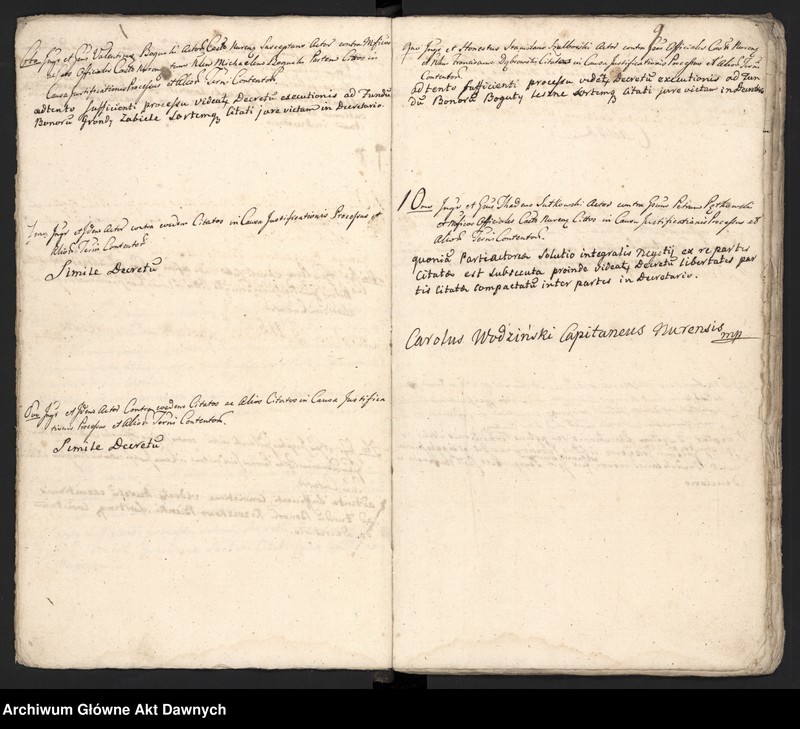 6to Inqr et Gnus Valentinus Bogucki Actor Castri Nurenq Susceptans Actor contra Mficos
ac Officiales Castri Nurens tum Nlem Michaelem Boguski Partem Cittos in
Causa Justificationis Processus et Alior Terni Contentor
adtento sufficienti processu videatz Decretū executionis ad Fundū
Bonorū Grondy Zabiele Sortemqz Citati jure victam in Decretario.
7mo Inqr et Idems Actor contra eosdem Citatos in Causa Justificationis Processus et
Alior Terni Contentor
Simile Decretū
8vo Inqr et Idems Actor Contra eosdens Citatos ac Alios Citatos in Causa Justifica
tionis Processus et Alior Terni Contentor.
Simile Decretū
9
Quo Inqr et Honestus Stanislaus Szulborski Actor contra Gnos Officiales Castri Nurenq
et Nlem Franciscum Dybowski Citatos in Causa Justificationis Processus et Alior Terni
Contentor
adtento sufficienti processu videatz Decretū executionis ad Fun
dū Bonorū Boguty Leszne Sortemqz Citati jure victam in Decretario
10mo Inqr et Gnus Thadeus Sutkowski Actor contra Gnum Petrum
et Mficos Officiales Castri Nurenq Cittos in Causa Justificationis Processus et
Alior Terni Contentor.
quoniā Parti Actorea Solutio integralis Neqtij ex re partis
Citatæ est subsecuta proinde videatz Decretū libertatis par
tis Citatæ compactatū inter partes in Decretario.
Carolus Wodziński Capitaneus Nurensis
mp
Archiwum Główne Akt Dawnych